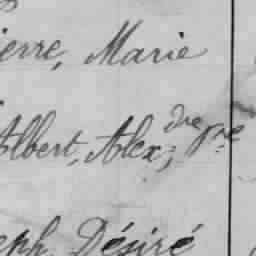 ierre, Marie
Albert, Alex,dre
eph Désiré